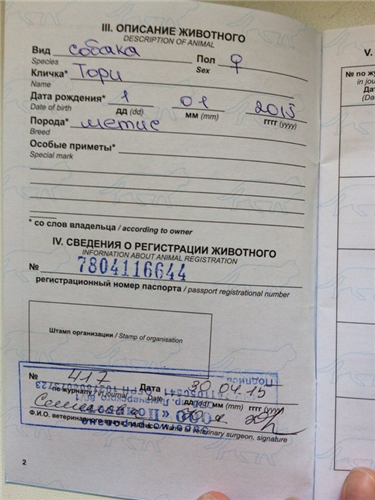 III. ОПИСАНИЕ ЖИВОТНОГО
DESCRIPTION OF ANIMAL
Вид собака Пол ♀
Species Sex
Кличка* Тори
Name
Дата рождения* 1 01 2015
Date of birth дд (dd) мм (mm) гггг (yyyy)
Порода* метис
Breed
Особые приметы*
Special mark
* со слов владельца / according to owner
IV. СВЕДЕНИЯ О РЕГИСТРАЦИИ ЖИВОТНОГО
INFORNATION ABOUT ANIMAL REGISTRATION
№ 7804116644
регистрационный номер паспорта / passport registrational number
Штамп организации / Stamp of organisation
№ 417 Дата 30.04.15
по журналу / in journal Date дд (dd) мм (mm) гггг (yyyy)
Ф.И.О. ветеринарного surgeon, signature
2
V.
№ по жу
in jou
Дат
Da